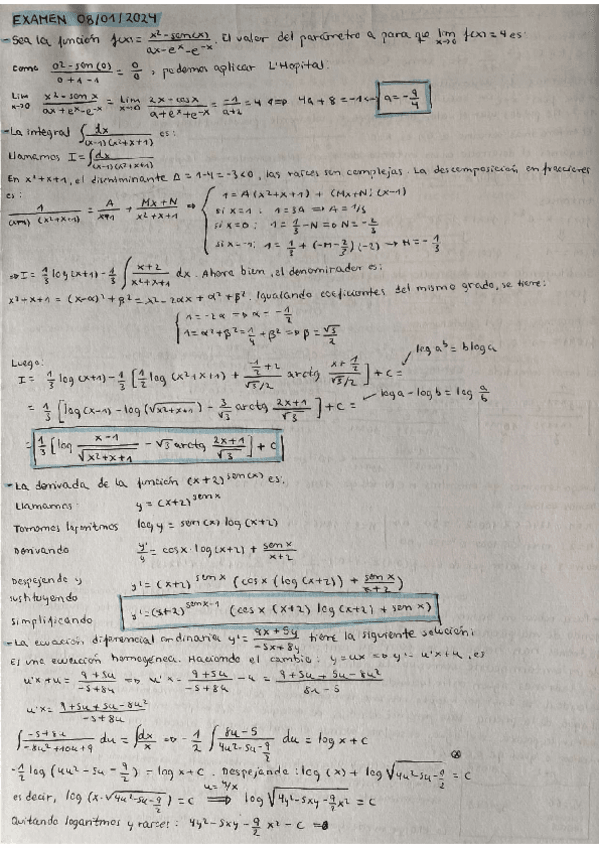 EXAMEN 08/01/2024
- Sea la función f(x) = (x² - sen(x))/(ax - eˣ - e⁻ˣ). El valor del parámetro a para que lim x→0 f(x) = 4 es:
Como (0² - sen(0))/(0 + 1 - 1) = 0/0, podemos aplicar L'Hopital:
Lim x→0 (x² - sen x)/(ax + eˣ - e⁻ˣ) = Lim x→0 (2x - cosx)/(a + eˣ + e⁻ˣ) = -1/(a+2) = 4 ⟺ 4a + 8 = -1 ⟺ a = -9/4
- La integral ∫ dx/((x-1)(x²+x+1)) es:
Llamamos I = ∫ dx/((x-1)(x²+x+1))
En x²+x+1, el discriminante Δ = 1-4 = -3 < 0, las raíces son complejas. La descomposición en fracciones
es:
1/((x-1)(x²+x+1)) = A/(x-1) + (Mx+N)/(x²+x+1) ⇒ 1 = A(x²+x+1) + (Mx+N)(x-1)
si x=1 : 1 = 3A ⇒ A = 1/3
si x=0 : 1 = 1/3 - N ⇒ N = -2/3
si x=-1: 1 = 1/3 + (-M - 2/3)(-2) → M = -1/3
⇒ I = 1/3 log(x+1) - 1/3 ∫ (x+2)/(x²+x+1) dx. Ahora bien, el denominador es:
x²+x+1 = (x-α)² + β² = x² - 2αx + α² + β². Igualando coeficientes del mismo grado, se tiene:
1 = -2α ⇒ α = -1/2
1 = α² + β² = 1/4 + β² ⇒ β = √3/2
Luego:
log aᵇ = b log a
I = 1/3 log(x+1) - 1/3 [1/2 log(x²+x+1) + (-1/2 + 2)/(√3/2) arctg (x + 1/2)/(√3/2)] + C =
log a - log b = log a/b
= 1/3 [log(x-1) - log(√(x²+x+1)) - 3/√3 arctg (2x+1)/√3] + C =
= 1/3 [log (x-1)/√(x²+x+1) - √3 arctg (2x+1)/√3] + C
- La derivada de la función (x+2)^sen(x) es:
Llamamos y = (x+2)^senx
Tomamos logaritmos log y = sen(x) log(x+2)
Derivando y'/y = cosx · log(x+2) + senx/(x+2)
Despejando y
sustituyendo y' = (x+2)^senx (cosx (log(x+2)) + senx/(x+2))
simplificando y' = (x+2)^(senx-1) (cosx (x+2) log(x+2) + senx)
- La ecuación diferencial ordinaria y' = (9x+5y)/(-5x+8y) tiene la siguiente solución:
Es una ecuación homogénea. Haciendo el cambio: y = ux ⇒ y' = u'x + u, es
u'x + u = (9+5u)/(-5+8u) ⇒ u'x = (9+5u)/(-5+8u) - u = (9+5u+5u-8u²)/(8u-5)
u'x = (9+5u+5u-8u²)/(-5+8u)
∫ (-5+8u)/(-8u²+10u+9) du = ∫ dx/x ⇒ -1/2 ∫ (8u-5)/(4u²-5u-9/2) du = log x + C
-1/2 log(4u²-5u-9/2) = log x + C. Despejando: log(x) + log √(4u²-5u-9/2) = C
es decir, log(x·√(4u²-5u-9/2)) = C ⟹ u=y/x log √(4y²-5xy-9/2x²) = C
Quitando logaritmos y raíces: 4y²-5xy-9/2x² = C ⇒